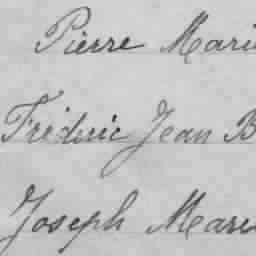 Pierre Marie
Fréderic Jean B
Joseph Marie